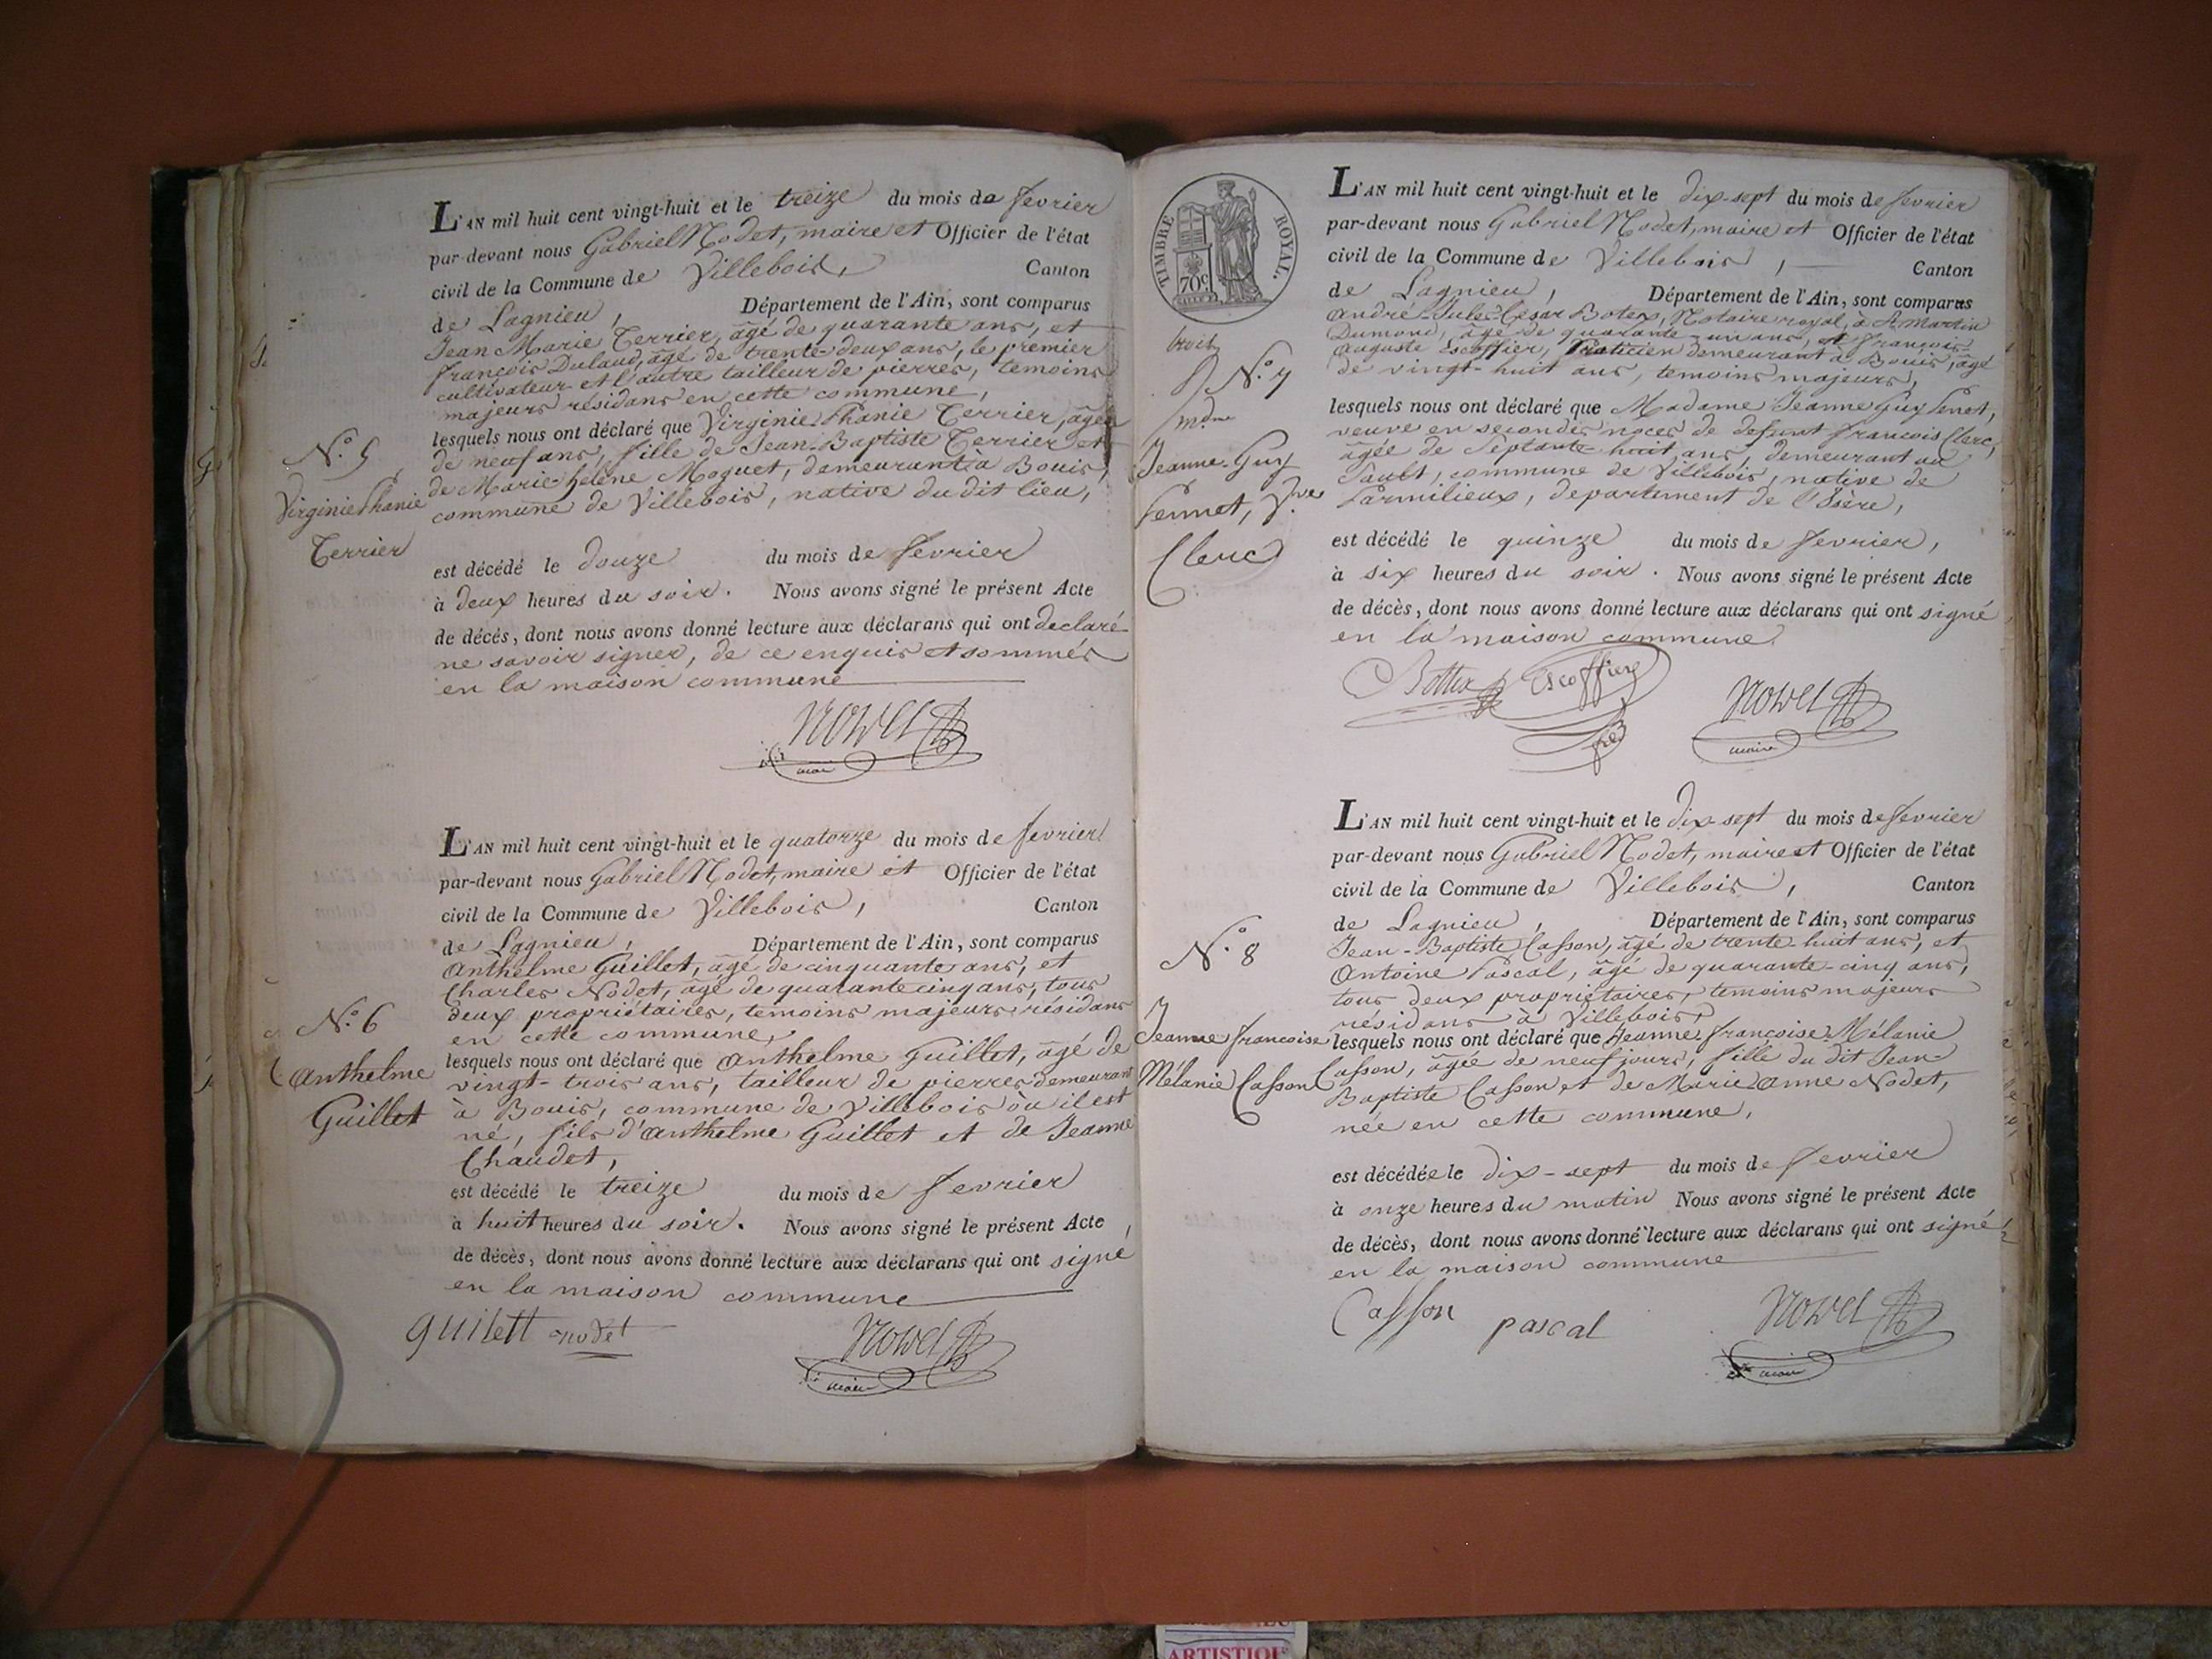 L'AN mil huit cent vingt-huit et le treize du mois de fevrier
par-devant nous Gabriel Nodet, maire et Officier de l'état
civil de la Commune de Villebois, Canton
de Lagnieu, Département de l'Ain, sont comparus
Jean Marie Terrier, âgé de quarante ans, et
françois Dulaud, âgé de trente-deux ans, le premier
cultivateur et l'autre tailleur de pierres, temoins
majeurs résidans en cette commune,
lesquels nous ont déclaré que Virginie Phanie Terrier, âgée
de neuf ans, fille de Jean-Baptiste Terrier et
de Marie-hélène Moguet, demeurant à Bouis,
commune de Villebois, native du dit lieu,
N.° 5
Virginie Phanie
Terrier
est décédé le douze du mois de fevrier
à deux heures du soir. Nous avons signé le présent Acte
de décès, dont nous avons donné lecture aux déclarans qui ont declaré
ne savoir signer, de ce enquis et sommés
en la maison commune
Nodet
maire
L'AN mil huit cent vingt-huit et le quatorze du mois de fevrier
par-devant nous Gabriel Nodet, maire et Officier de l'état
civil de la Commune de Villebois, Canton
de Lagnieu, Département de l'Ain, sont comparus
Anthelme Guillet, âgé de cinquante ans, et
Charles Nodet, âgé de quarante cinq ans, tous
deux propriétaires, temoins majeurs résidans
en cette commune,
N.° 6
Anthelme
Guillet
lesquels nous ont déclaré que Anthelme Guillet, âgé de
vingt-trois ans, tailleur de pierres demeurant
à Bouis, commune de Villebois où il est
né, fils d'Anthelme Guillet et de Jeanne
Chaudet,
est décédé le treize du mois de fevrier
à huit heures du soir. Nous avons signé le présent Acte
de décès, dont nous avons donné lecture aux déclarans qui ont signé
en la maison commune
guilett nodet Nodet
maire
TIMBRE ROYAL.
70c
L'AN mil huit cent vingt-huit et le dix-sept du mois de fevrier
par-devant nous Gabriel Nodet, maire et Officier de l'état
civil de la Commune de Villebois, Canton
de Lagnieu, Département de l'Ain, sont comparus
André-Jules-César Botex, Notaire royal, à St. Martin
Dumond, âgé de quarante-un ans, et françois-
Auguste Escoffier, Praticien demeurant à Bouis, âgé
de vingt-huit ans, temoins majeurs,
N.° 7
mdme
Jeanne-Guy
Pennet, Vve
Clerc
lesquels nous ont déclaré que Madame Jeanne Guy Penet,
veuve en secondes noces de defunt françois Clerc,
âgée de Septante-huit ans, demeurant au
Sault, commune de Villebois, native de
Parmilieux, departement de l'Isère,
est décédé le quinze du mois de fevrier,
à six heures du soir. Nous avons signé le présent Acte
de décès, dont nous avons donné lecture aux déclarans qui ont signé
en la maison commune
Bottex Escoffier Nodet
maire
L'AN mil huit cent vingt-huit et le dix-sept du mois de fevrier
par-devant nous Gabriel Nodet, maire et Officier de l'état
civil de la Commune de Villebois, Canton
de Lagnieu, Département de l'Ain, sont comparus
Jean-Baptiste Casson, âgé de trente-huit ans, et
Antoine Pascal, âgé de quarante-cinq ans,
tous deux propriétaires, temoins majeurs
résidans à Villebois,
N.° 8
Jeanne francoise
Mélanie Casson
lesquels nous ont déclaré que Jeanne françoise Mélanie
Casson, âgée de neuf jours, fille du dit Jean-
Baptiste Casson et de Marie Anne Nodet,
née en cette commune,
est décédée le dix-sept du mois de fevrier
à onze heures du matin Nous avons signé le présent Acte
de décès, dont nous avons donné lecture aux déclarans qui ont signé
en la maison commune
Casson pascal Nodet
maire
ARTISTIQUE